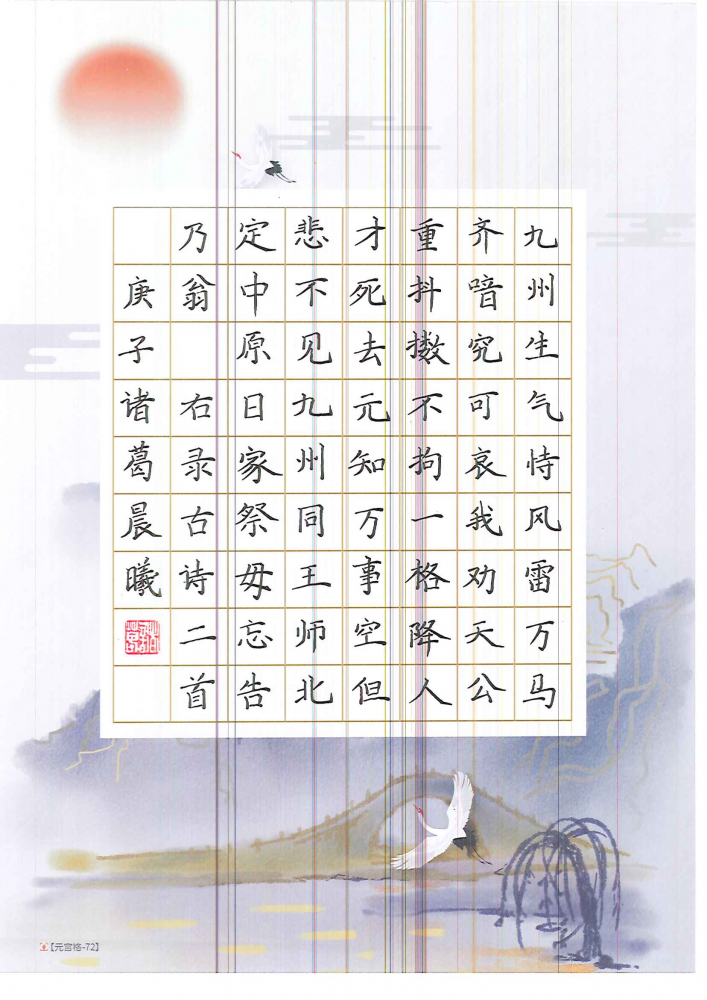 九州生气恃风雷万马
齐喑究可哀我劝天公
重抖擞不拘一格降人
才死去元知万事空但
悲不见九州同王师北
定中原日家祭毋忘告
乃翁 右录古诗二首
庚子诸葛晨曦
【元宫格-72】